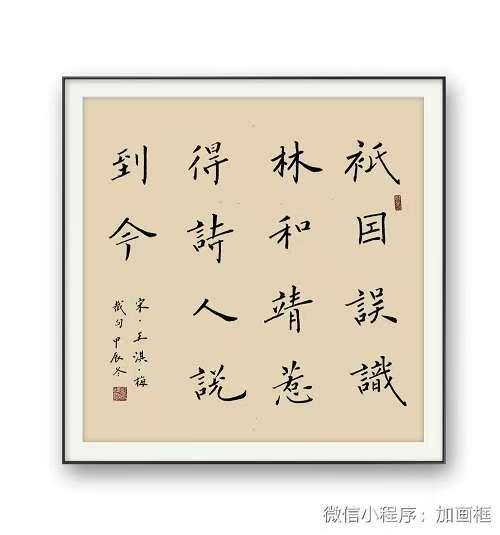 衹因誤識
林和靖惹
得詩人説
到今
宋·王淇·梅
截句 甲辰冬
微信小程序：加画框